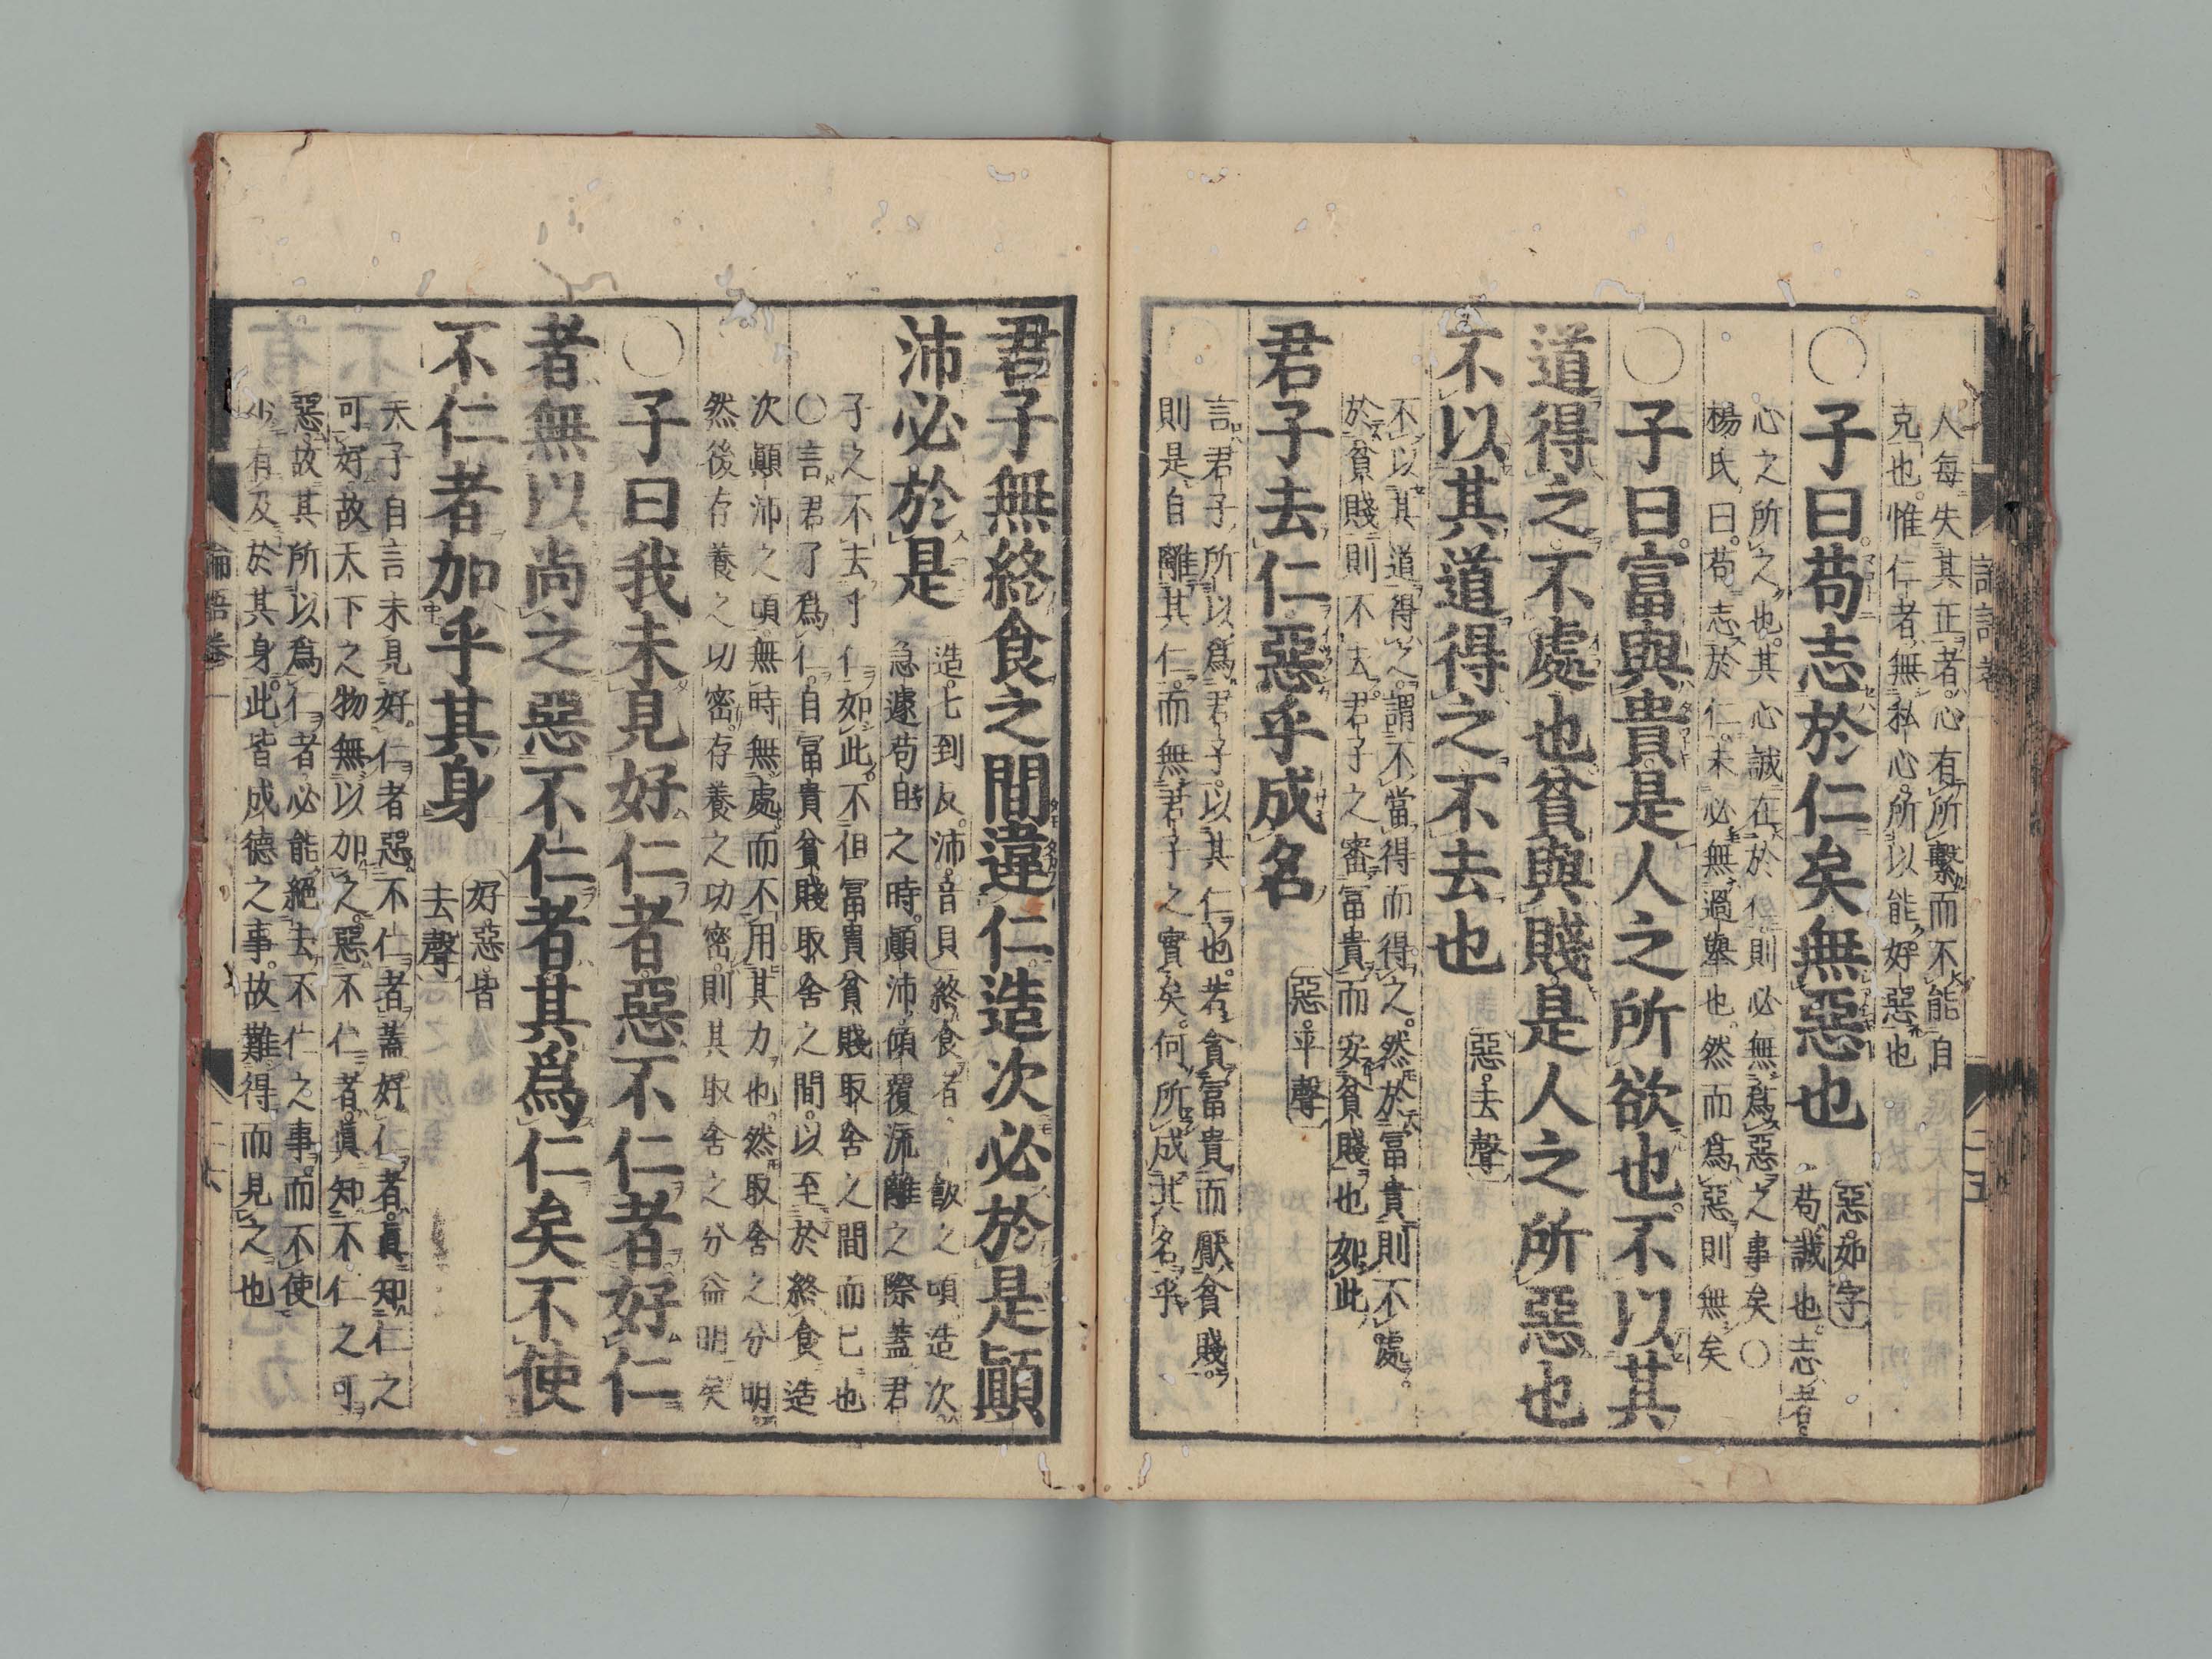 人每失其正者心有所繫而不能自
克也惟仁者無私心所以能好惡也
○子曰苟志於仁矣無惡也
惡如字
苟誠也志者
心之所之也其心誠在於仁則必無爲惡之事矣○
楊氏曰苟志於仁未必無過擧也然而爲惡則無矣
○子曰富與貴是人之所欲也不以其
道得之不處也貧與賤是人之所惡也
不以其道得之不去也
惡去聲
不以其道得之謂不當得而得之然於富貴則不處
於貧賤則不去君子之審富貴而安貧賤也如此
君子去仁惡乎成名
惡平聲
言君子所以爲君子以其仁也若貪富貴而厭貧賤
則是自離其仁而無君子之實矣何所成其名乎
君子無終食之間違仁造次必於是顚
沛必於是
造七到反沛音貝終食者一飯之頃造次
急遽苟且之時顚沛傾覆流離之際蓋君
子之不去乎仁如此不但冨貴貧賤取舍之間而已也
○言君子爲仁自冨貴貧賤取舍之間以至於終食造
次顚沛之頃無時無處而不用其力也然取舍之分明
然後存養之功密存養之功密則其取舍之分益明矣
○子曰我未見好仁者惡不仁者好仁
者無以尚之惡不仁者其爲仁矣不使
不仁者加乎其身
好惡皆
去聲
夫子自言未見好仁者惡不仁者蓋好仁者眞知仁之
可好故天下之物無以加之惡不仁者眞知不仁之可
惡故其所以爲仁者必能絕去不仁之事而不使
少有及於其身此皆成德之事故難得而見之也
論語卷一
二六